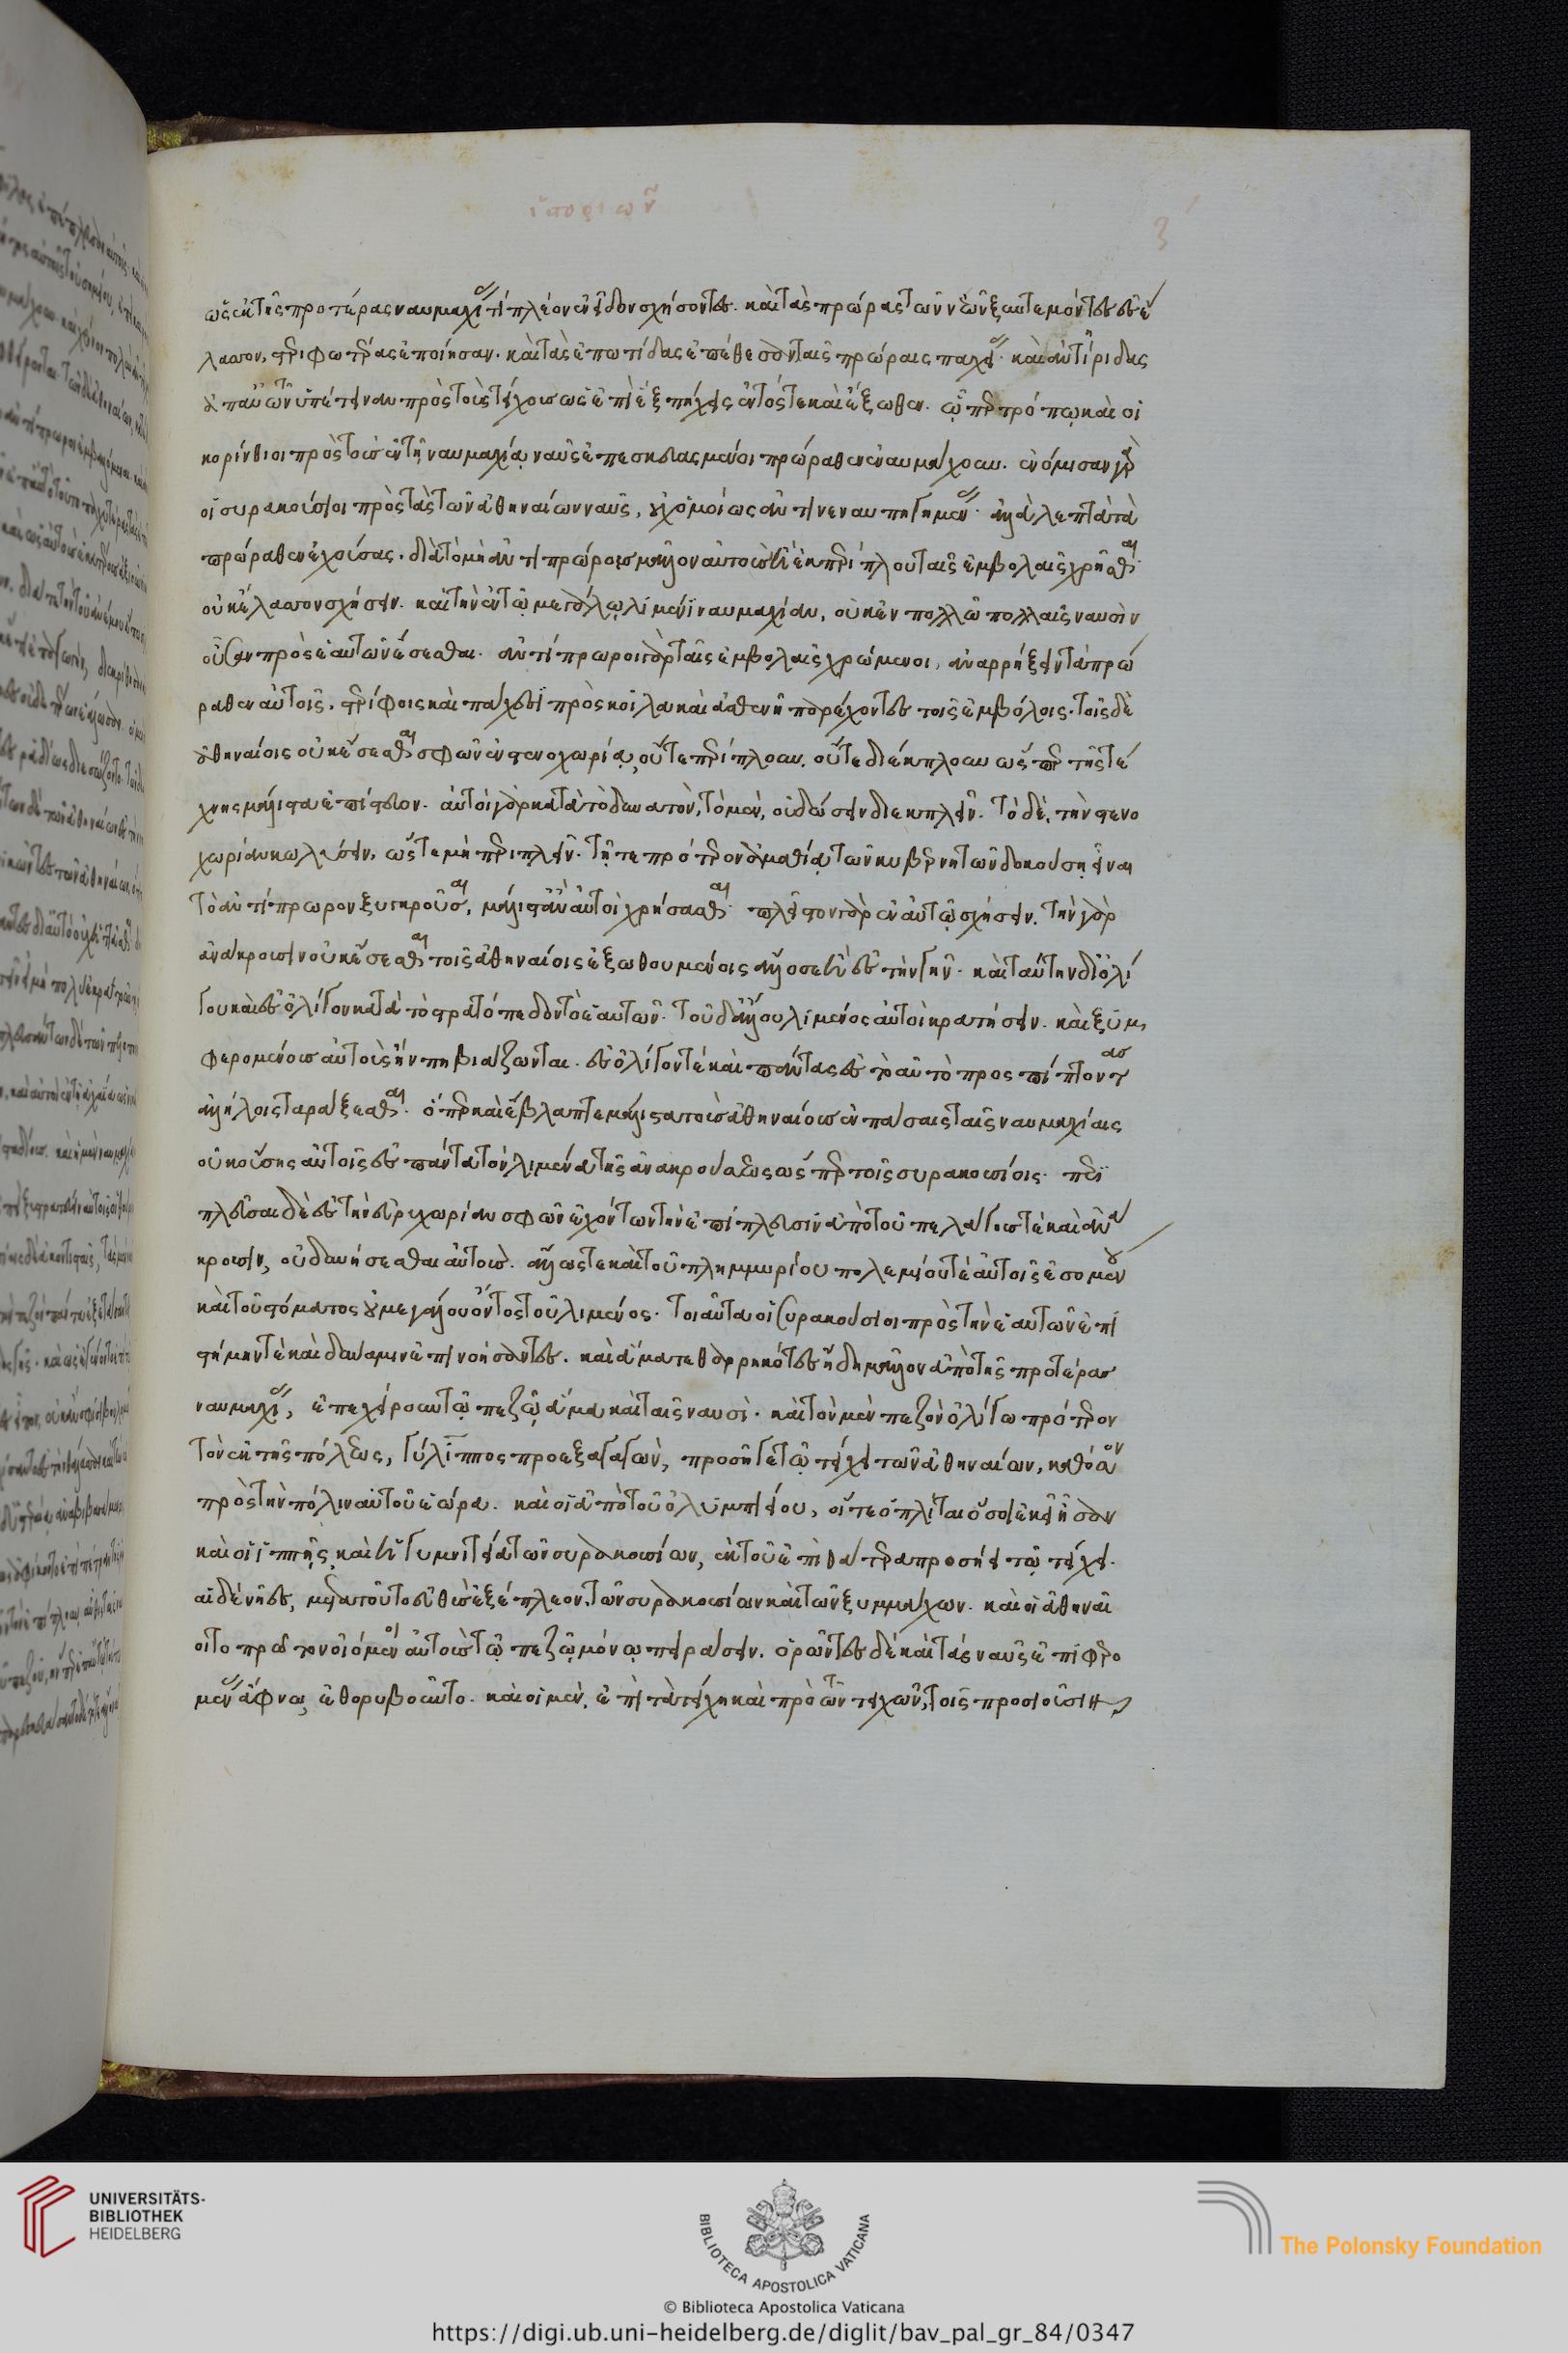 ἱστοριῶν
ζʹ
ὡς ἐκ τῆς προτέρας ναυμαχίας τί πλέον ἐνεῖδον σχήσοντες. καὶ τὰς πρώρας τῶν νεῶν ξυντεμόντες ἐς ἔ
λασσον, στεριφωτέρας ἐποίησαν. καὶ τὰς ἐπωτίδας ἐπέθεσαν ταῖς πρώραις παχείας. καὶ ἀντηρίδας
ἀπ' αὐτῶν ὑπέτειναν πρὸς τοὺς τείχους ὡς ἐπὶ ἓξ πήχεις ἐντός τε καὶ ἔξωθεν. ᾧπερ τρόπῳ καὶ οἱ
κορίνθιοι πρὸς τοὺς ἐν τῇ ναυμαχίᾳ ναῦς ἐπεσκευασμένοι πρώραθεν ἐναυμάχουν. ἐνόμισαν γὰρ
οἱ συρακούσιοι πρὸς τὰς τῶν ἀθηναίων ναῦς, οὐχ ὁμοίως ἀντινεναυπηγημένας. ἀλλὰ λεπτὰ τὰ
πρώραθεν ἐχούσας. διὰ τὸ μὴ ἀντιπρώροις μᾶλλον αὐτοὺς ἢ ἐκ περίπλου ταῖς ἐμβολαῖς χρῆσθαι.
οὐκ ἔλασσον σχήσειν. καὶ τὴν ἐν τῷ μεγάλῳ λιμένι ναυμαχίαν, οὐκ ἐν πολλῷ πολλαῖς ναυσὶν
οὖσαν πρὸς ἑαυτῶν ἔσεσθαι. ἀντίπρωροι γὰρ ταῖς ἐμβολαῖς χρώμενοι, ἀναρρήξειν τὰ πρώ
ραθεν αὐτοῖς. στερίφοις καὶ παχέσι πρὸς κοῖλα καὶ ἀσθενῆ παρέχοντες τοῖς ἐμβόλοις. τοῖς δὲ
ἀθηναίοις οὐκ ἔσεσθαι σφῶν ἐν στενοχωρίᾳ, οὔτε περίπλουν. οὔτε διέκπλουν ὥσπερ τῆς τέ
χνης μάλιστα ἐπίστευον. αὐτοὶ γὰρ κατὰ τὸ δυνατὸν, τὸ μὲν, οὐ δώσειν διεκπλεῖν. τὸ δὲ, τὴν στενο
χωρίαν κωλύσειν, ὥστε μὴ περιπλεῖν. τῇ τε πρότερον ἀμαθίᾳ τῶν κυβερνητῶν δοκούσῃ εἶναι
τὸ ἀντίπρωρον ξυγκροῦσαι, μάλιστ' ἂν αὐτοὶ χρήσασθαι. πλεῖστον γὰρ ἐν αὐτῷ σχήσειν. τὴν γὰρ
ἀνάκρουσιν οὐκ ἔσεσθαι τοῖς ἀθηναίοις ἐξωθουμένοις ἄλλοσε ἢ ἐς τὴν γῆν. καὶ ταύτην δι' ὀλί
γου καὶ ἐς ὀλίγον κατὰ τὸ στρατόπεδον τὸ ἑαυτῶν. τοῦ δ' ἄλλου λιμένος αὐτοὶ κρατήσειν. καὶ ξυμ
φερομένους αὐτοὺς ἤν πη βιάζωνται. ἐς ὀλίγον τὲ καὶ πάντας ἐς τὸ αὐτὸ προσπίπτοντας
ἀλλήλοις ταράξεσθαι. ὅπερ καὶ ἔβλαπτε μάλιστα τοὺς ἀθηναίους ἐν πάσαις ταῖς ναυμαχίαις
οὐκ οὔσης αὐτοῖς ἐς πάντα τὸν λιμένα τῆς ἀνακρούσεως ὥσπερ τοῖς συρακουσίοις. περι
πλεῦσαι δὲ ἐς τὴν εὐρυχωρίαν σφῶν ἐχόντων τὴν ἐπίπλευσιν ἀπὸ τοῦ πελάγους τὲ καὶ ἀνά
κρουσιν, οὐ δυνήσεσθαι αὐτούς. ἄλλως τε καὶ τοῦ πλημμυρίου πολεμίου τὲ αὐτοῖς ἐσομένου
καὶ τοῦ στόματος οὐ μεγάλου ὄντος τοῦ λιμένος. τοιαῦτα οἱ συρακούσιοι πρὸς τὴν ἑαυτῶν ἐπι
στήμην τὲ καὶ δύναμιν ἐπινοήσαντες. καὶ ἅμα τεθαρρηκότες ἤδη μᾶλλον ἀπὸ τῆς προτέρας
ναυμαχίας, ἐπεχείρουν τῷ πεζῷ ἅμα καὶ ταῖς ναυσί. καὶ τὸν μὲν πεζὸν ὀλίγῳ πρότερον
τὸν ἐκ τῆς πόλεως, γύλιππος προεξαγαγὼν, προσῆγε τῷ τείχει τῶν ἀθηναίων, καθόσον
πρὸς τὴν πόλιν αὐτοῦ ἑώρα. καὶ οἱ ἀπὸ τοῦ ὀλυμπιείου, οἵ τε ὁπλῖται ὅσοι ἐκεῖ ἦσαν
καὶ οἱ ἱππῆς καὶ ἡ γυμνιτεία τῶν συρακουσίων, ἐκ τοῦ ἐπὶ θάτερα προσῄει τῷ τείχει.
αἱ δὲ νῆες, μετὰ τοῦτο εὐθὺς ἐξέπλεον τῶν συρακουσίων καὶ τῶν ξυμμάχων. καὶ οἱ ἀθηναῖ
οι τὸ πρῶτον οἰόμενοι αὐτοὺς τῷ πεζῷ μόνῳ πειράσειν. ὁρῶντες δὲ καὶ τὰς ναῦς ἐπιφερο
μένας ἄφνω, ἐθορυβοῦντο. καὶ οἱ μὲν, ἐπὶ τὰ τείχη καὶ πρὸ τῶν τειχῶν, τοῖς προσιοῦσιν
UNIVERSITÄTS-
BIBLIOTHEK
HEIDELBERG
BIBLIOTECA APOSTOLICA VATICANA
The Polonsky Foundation
© Biblioteca Apostolica Vaticana
https://digi.ub.uni-heidelberg.de/diglit/bav_pal_gr_84/0347